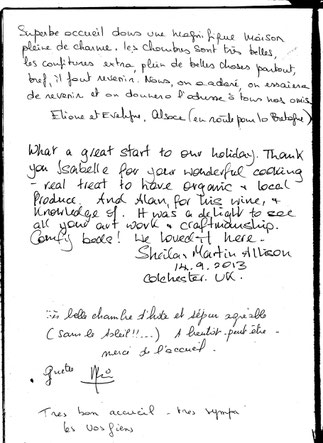 Superbe accueil dans une magnifique maison
pleine de charme. les chambres sont très belles,
les confitures extra, plein de belles choses partout,
bref, il faut revenir. Nous, on a adoré, on essaiera
de revenir et on donnera l'adresse à tous nos amis.
Eliane et Evelyne, Alsace (en route pour la Bretagne)
What a great start to our holiday. Thank
you Isabelle for your wonderful cooking
- real treat to have organic & local
Produce. And Alan, for his wine, &
knowledge of. It was a delight to see
all your art work & craftmanship.
Comfy beds! We loved it here -
Sheila, Martin Allison
14.9.2013
Colchester. UK.
belle chambre d'hôte et séjour agréable
(sans le soleil!!...) A bientôt peut être -
merci de l'accueil.
Très bon accueil - très sympa
les Vosgiens